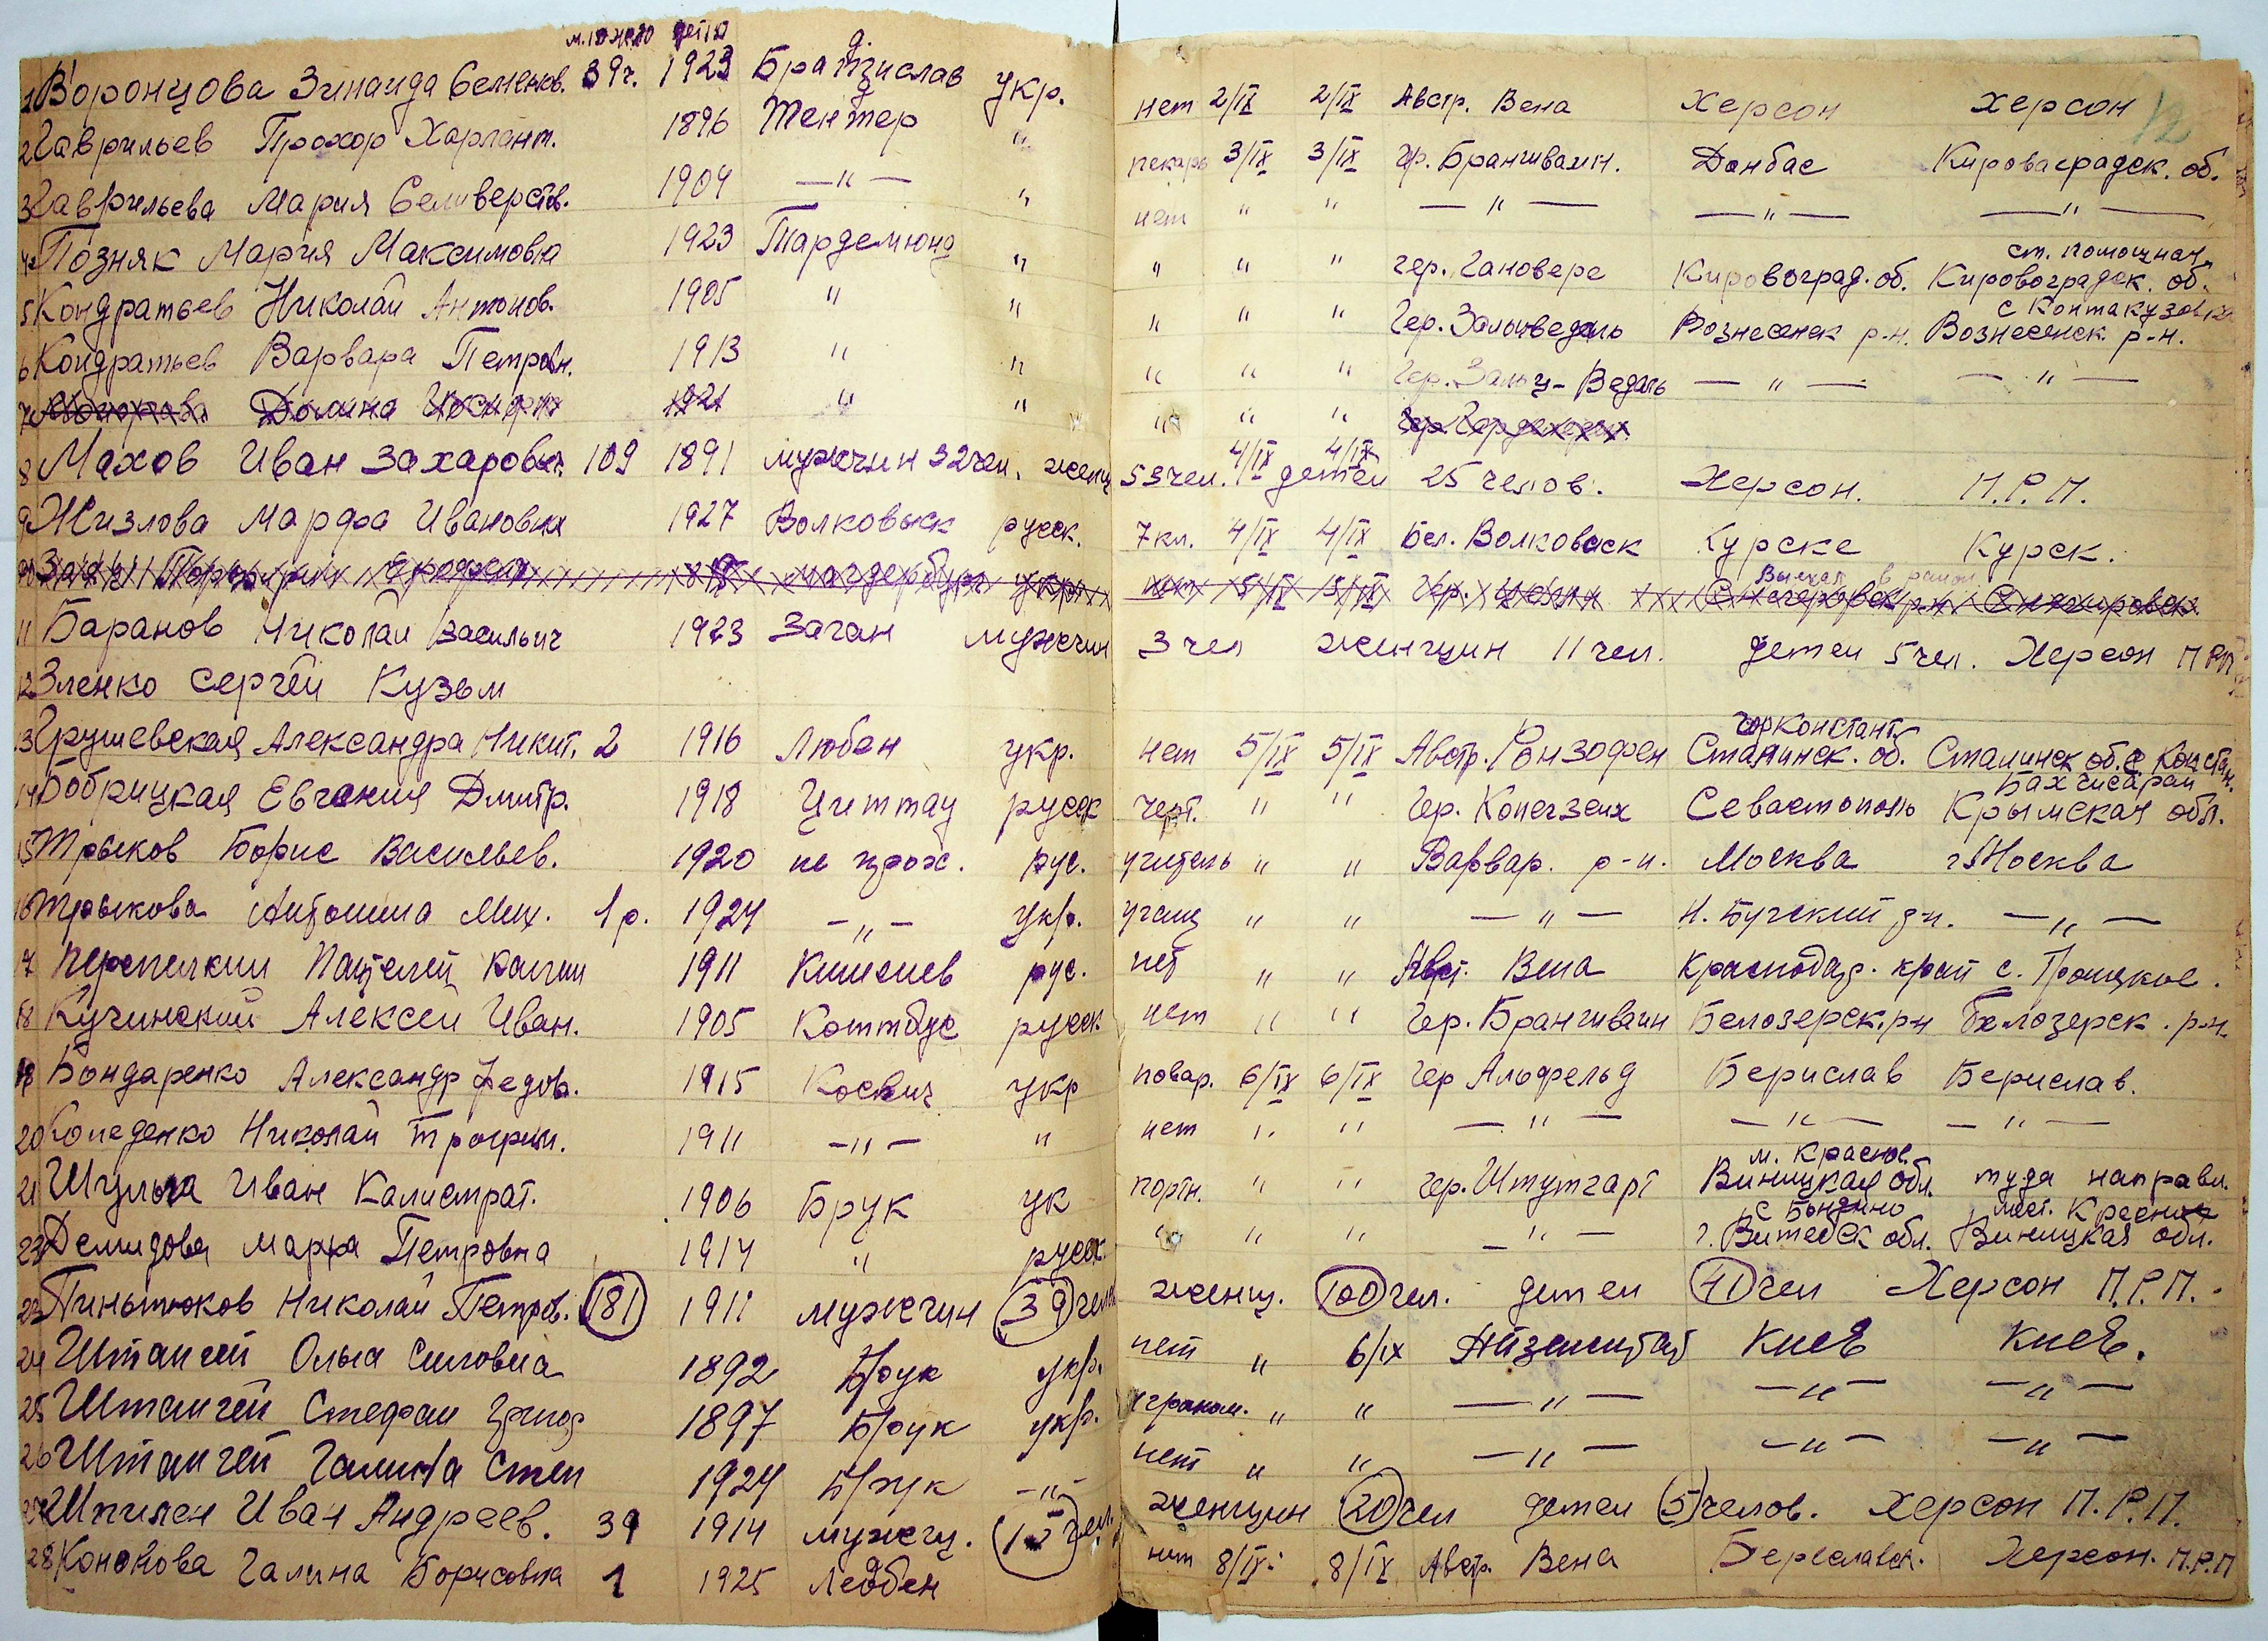 м. 10 ж. 20 дет. 10
1 Воронцова Зинаида Семенов. 39ч. 1923 Братислав укр. нет 2/IX 2/IX Австр. Вена Херсон Херсон 12
2 Гаврильев Прохор Харлант. 1896 Тентер " пекарь 3/IX 3/IX гр. Брангиваин. Донбас Кировоградск. об.
3 Гаврильева Мария Селиверств. 1904 —"— " нет " " —"— —"— —"—
ст. Помощная
4 Позняк Мария Максимовна 1923 Тарделюнд " " " " гер. Гановере Кировоград. об. Кировоградск. об.
с Контакузовка
5 Кондратьев Николай Антонов. 1905 " " " " " Гер. Зальцведель Вознесенск р-н. Вознесенск. р-н.
6 Кондратьев Варвара Петровн. 1913 " " " " " Гер. Зальц-Ведель —"— —"—
7 Долина 1921 " " " " "
8 Махов Иван Захарович 109 1891 мужчин 32 чел. женщ 53 чел. 4/IX 4/IX детей 25 челов. Херсон. П.Р.П.
9 Жизлова Марфа Ивановна 1927 Волковыск русск. 7 кл. 4/IX 4/IX Бел. Волковыск Курске Курск.
Выехал в район
10 магдербург укр. нет 5/IX 5/IX Гер.
11 Баранов Николай Васильич 1923 Заган мужчин 3 чел женщин 11 чел. детей 5 чел. Херсон ПРП
12 Зленко Сергей Кузьм
гор Констант.
13 Грушевская Александра Никит. 2 1916 Любен укр. нет 5/IX 5/IX Австр. Ронзофен Сталинск. об. Сталинск об. г Констан.
Бахчисарай
14 Бобрицкая Евгения Дмитр. 1918 Циттау русск черт. " " Гер. Копегзеих Севастополь Крымская обл.
15 Трыков Борис Васильев. 1920 не прож. рус. учитель " " Варвар. р-н. Москва г Москва
16 Трыкова Антонина Мих. 1 р. 1924 —"— укр. учащ " " —"— Н. Бугский р-н. —"—
17 Перепелкин Пантелей Калин 1911 Кишенев рус. нет " " Авст. Вена Краснодар. край с. Троицкое.
18 Кучинский Алексей Иван. 1905 Коттбус русск нет " " Гер. Брангиваин Белозерск. р-н Белозерск. р-н.
19 Бондаренко Александр Федов. 1915 Косвиг укр повар. 6/IX 6/IX Гер Альфельд Берислав Берислав.
20 Коледенко Николай Трофим. 1911 —"— " нет " " —"— —"— —"—
м. Краснов.
21 Шульга Иван Калистрат. 1906 Брук ук портн. " " Гер. Штутгарт Виницкая обл. туда направл.
с Бондино мест. Красное
23 Демидова Марфа Петровна 1914 " русск " " " —"— г. Витебск обл. Виницкая обл.
23 Пиньтюков Николай Петров. 181 1911 мужчин 39 чел. женщ. 100 чел. детей 41 чел Херсон П.Р.П.
24 Штангей Ольга Силовна 1892 Брук укр. нет " 6/IX Айзенштат Киев Киев.
25 Штангей Стефан Григор 1897 Брук укр. агроном. " " —"— —"— —"—
26 Штангей Галина Степ 1924 Брук —"— нет " " —"— —"— —"—
27 Шпилен Иван Андреев. 39 1914 мужч. 15 чел. женщин 20 чел детей 5 челов. Херсон П.Р.П.
28 Конокова Галина Борисовна 1 1925 Леобен нет 8/IX. 8/IX Австр. Вена Береславск. Херсон. П.Р.П